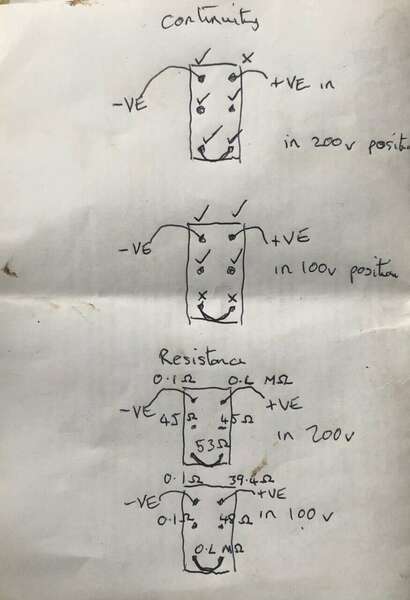 Continuity
✓ ×
-VE +VE in
✓ ✓
✓ ✓ in 200v position
✓ ✓
-VE +VE
✓ ✓ in 100v position
× ×
Resistance
0.1Ω O.L MΩ
-VE +VE
45Ω 45Ω in 200v
53Ω
0.1Ω 39.4Ω
-VE +VE
0.1Ω 48Ω in 100v
O.L MΩ